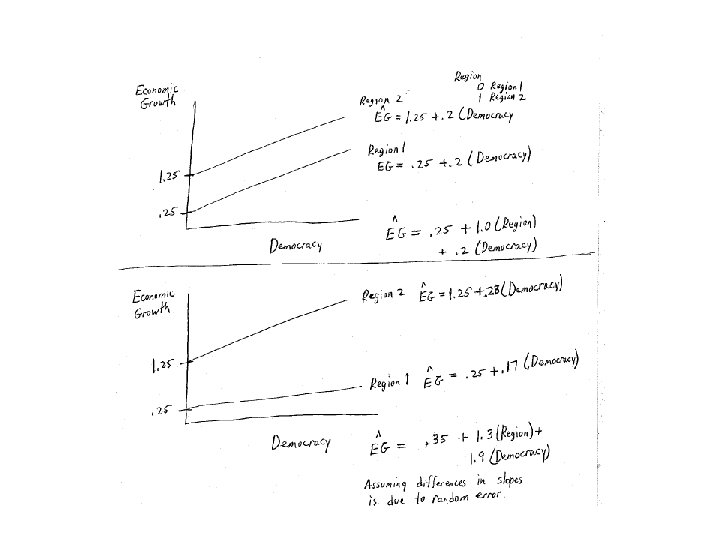 Region
0 Region 1
1 Region 2
Economic
Growth
Region 2
ÊG = 1.25 + .2 (Democracy
Region 1
EG = .25 + .2 (Democracy)
1.25
.25
ÊG = .25 + 1.0 (Region)
+ .2 (Democracy)
Democracy
Economic
Growth
Region 2 ÊG = 1.25 + .28 (Democracy)
1.25
Region 1 ÊG = .25 + .17 (Democracy)
.25
Democracy
ÊG = .35 + 1.3 (Region) +
1.9 (Democracy)
Assuming differences in slopes
is due to random error.